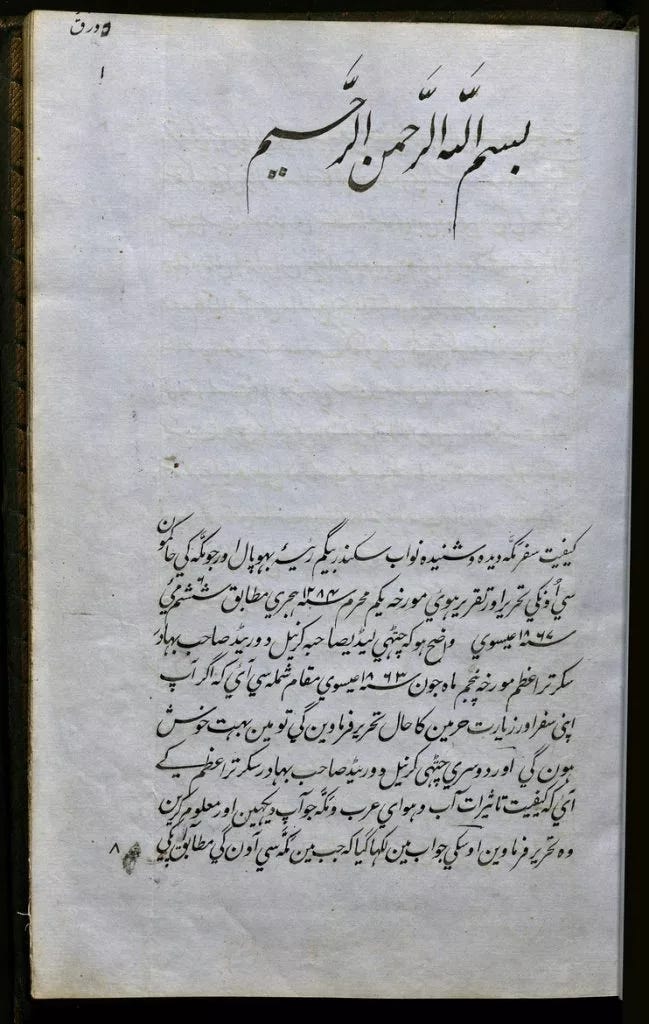 ورق
۱
بسم اللہ الرَّحمن الرَّحیم
کیفیت سفر مکّہ دیدہ و شنیدہ نواب سکندر بیگم رئیسۂ بہوپال اور جو مکّہ کی حاکمون
سی اُونکی تحریر اور تقریر ہوئی مورخہ یکم محرم سنہ ۱۲۸۴ ہجری مطابق ششم مئی
سنہ ۱۸۶۷ عیسوی واضح ہو کہ چٹہی لیڈیصاحبہ کرنیل دورینڈ صاحب بہادر
سکرتر اعظم مورخہ پنجم ماہ جون سنہ ۱۸۶۳ عیسوی مقام شملہ سی آئی کہ اگر آپ
اپنی سفر اور زیارت حرمین کا حال تحریر فرماوین گی تو مین بہت خوش
ہون گی اور دوسری چٹہی کرنیل دورینڈ صاحب بہادر سکرتر اعظم کے
آئی کہ کیفیت تاثیرات آب و ہوای عرب و مکّہ جو آپ دیکہین اور معلوم کرین
وہ تحریر فرماوین اوسکی جواب مین لکہا گیا کہ جب مین مکّہ سی آون گی مطابق آپکی
۸